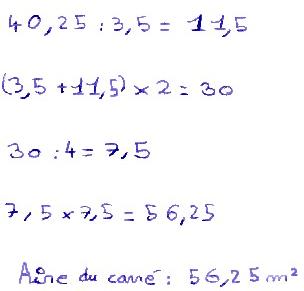 40,25 : 3,5 = 11,5
(3,5 + 11,5) × 2 = 30
30 : 4 = 7,5
7,5 × 7,5 = 56,25
Aire du carré : 56,25 m²